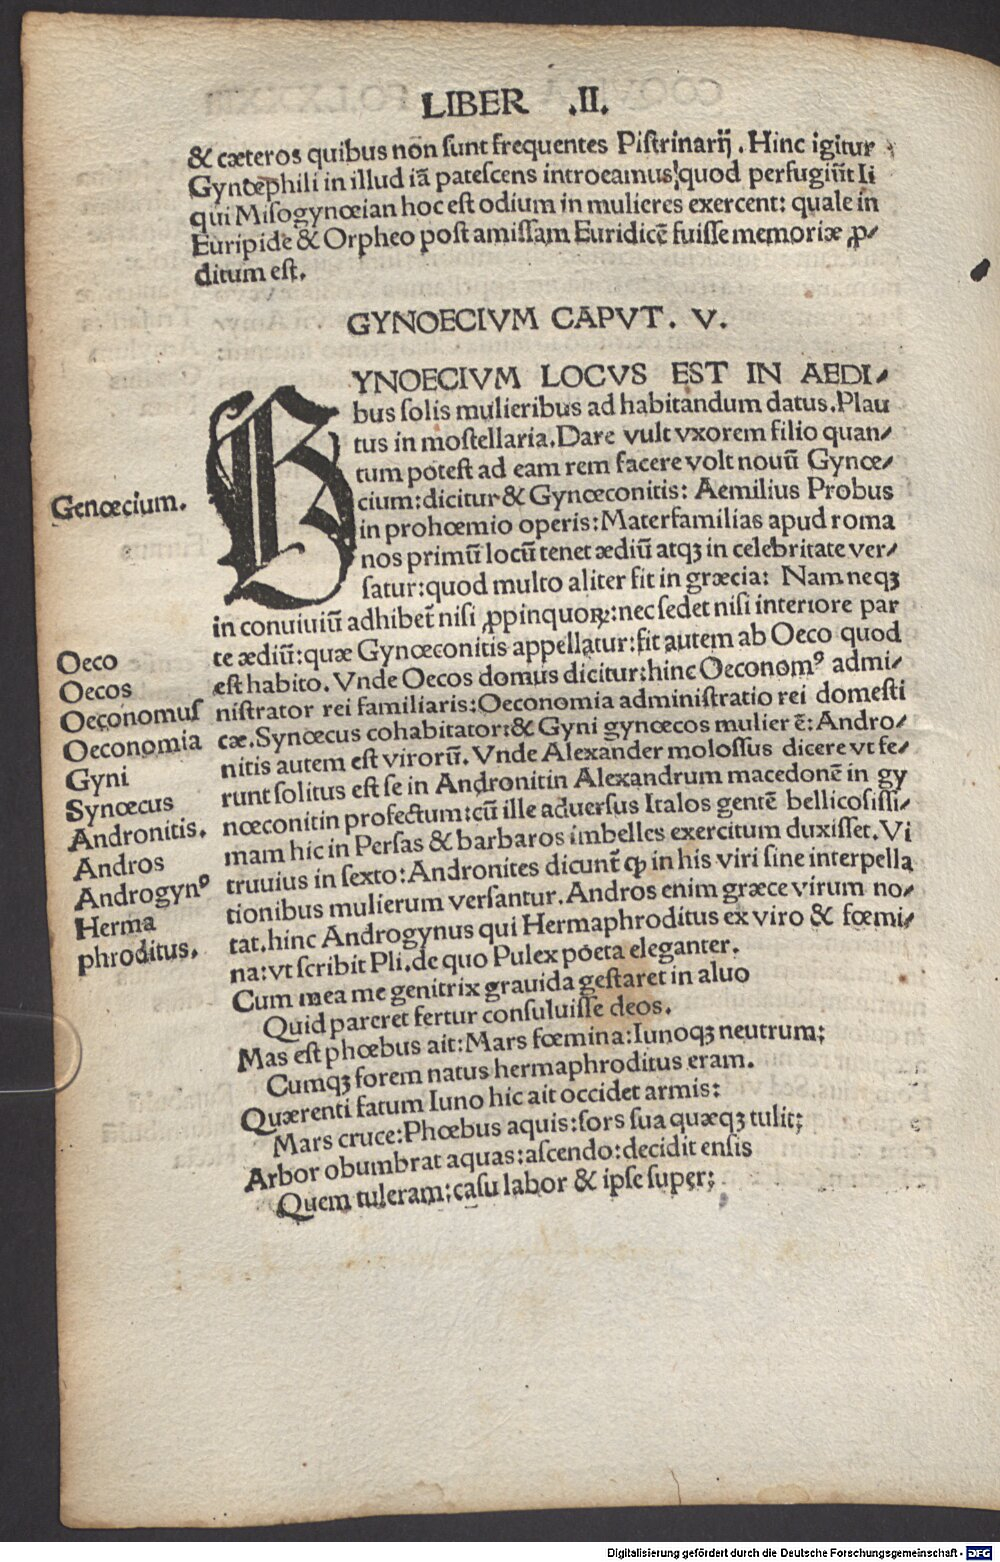 LIBER .II.
& cæteros quibus non sunt frequentes Pistrinarij. Hinc igitur
Gynœphili in illud iā patescens introeamus: quod perfugiūt Ii
qui Misogynœian hoc est odium in mulieres exercent: quale in
Euripide & Orpheo post amissam Euridicē fuisse memoriæ ꝓ/
ditum est.
GYNOECIVM CAPVT. V.
GYNOECIVM LOCVS EST IN AEDI/
bus solis mulieribus ad habitandum datus. Plau
tus in mostellaria. Dare vult vxorem filio quan/
tum potest ad eam rem facere volt nouū Gynœ/
Genœcium.
cium: dicitur & Gynœconitis: Aemilius Probus
in prohœmio operis: Materfamilias apud roma
nos primū locū tenet ædiū atqꝫ in celebritate ver/
satur: quod multo aliter fit in græcia: Nam neqꝫ
in conuiuiū adhibet̄ nisi ꝓpinquoꝝ: nec sedet nisi interiore par
Oeco
te ædiū: quæ Gynœconitis appellatur: fit autem ab Oeco quod
Oecos
est habito. Vnde Oecos domus dicitur: hinc Oeconomꝰ admi/
Oeconomus
nistrator rei familiaris: Oeconomia administratio rei domesti
Oeconomia
cæ. Synœcus cohabitator: & Gyni gynœcos mulier ē: Andro/
Gyni
nitis autem est virorū. Vnde Alexander molossus dicere vt fe/
Synœcus
runt solitus est se in Andronitin Alexandrum macedonē in gy
Andronitis.
nœconitin profectum: cū ille aduersus Italos gentē bellicosissi/
Andros
mam hic in Persas & barbaros imbelles exercitum duxisset. Vi
Androgynꝰ
truuius in sexto: Andronites dicunt̄ ꝙ in his viri sine interpella
Herma
tionibus mulierum versantur. Andros enim græce virum no/
phroditus.
tat. hinc Androgynus qui Hermaphroditus ex viro & fœmi/
na: vt scribit Pli. de quo Pulex poeta eleganter.
Cum mea me genitrix grauida gestaret in aluo
Quid pareret fertur consuluisse deos.
Mas est phœbus ait: Mars fœmina: Iunoqꝫ neutrum:
Cumqꝫ forem natus hermaphroditus eram.
Quærenti fatum Iuno hic ait occidet armis:
Mars cruce: Phœbus aquis: sors sua quæqꝫ tulit:
Arbor obumbrat aquas: ascendo: decidit ensis
Quem tuleram: casu labor & ipse super:
Digitalisierung gefördert durch die Deutsche Forschungsgemeinschaft - DFG